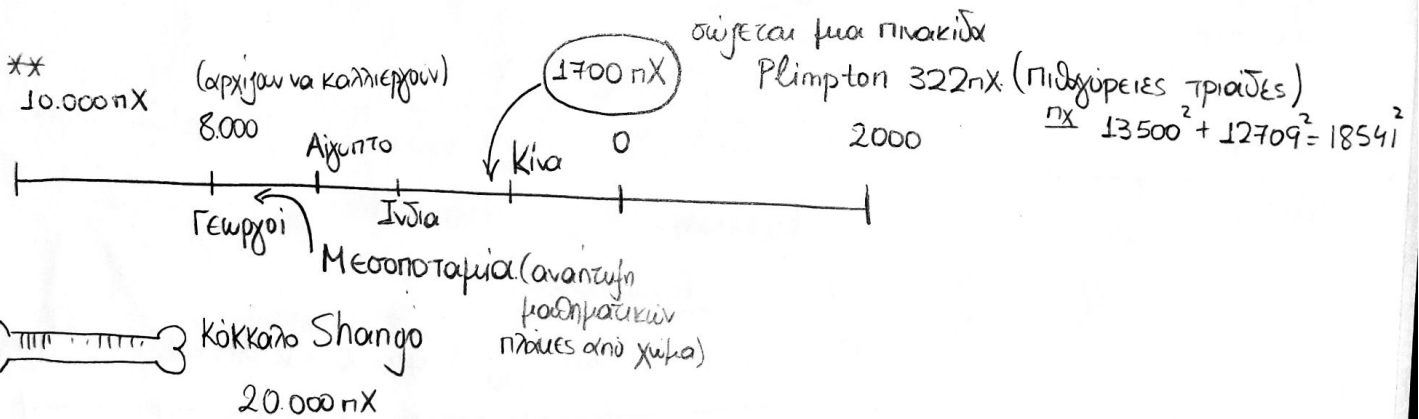 σώζεται μια πινακίδα
**
10.000 πΧ
(αρχίζαν να καλλιεργούν)
8.000
1700 πΧ
Plimpton 322πΧ. (πιθαγόρειες τριάδες)
πχ 13500² + 12709² = 18541²
Αίγυπτο
Κίνα
0
2000
Γεωργοί
Ινδία
Μεσοποταμία (ανάπτυξη
μαθηματικών
πλάκες από χώμα)
κόκκαλο Shango
20.000 πΧ